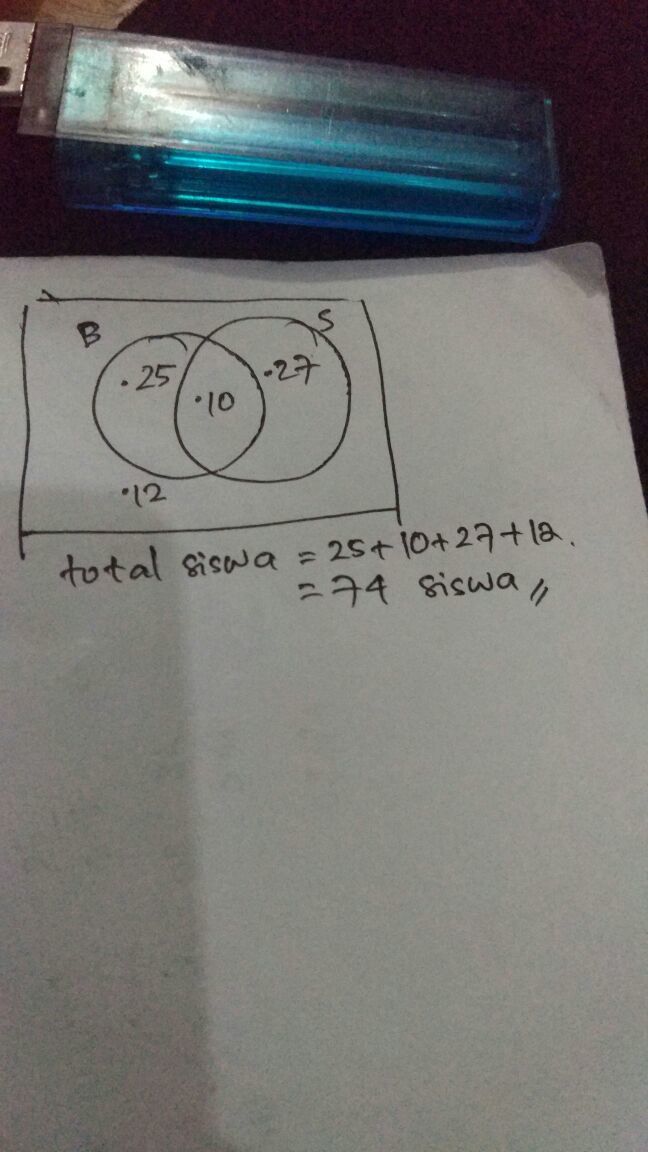 B
S
.25
.10
.27
.12
total siswa = 25+10+27+12.
= 74 siswa,,